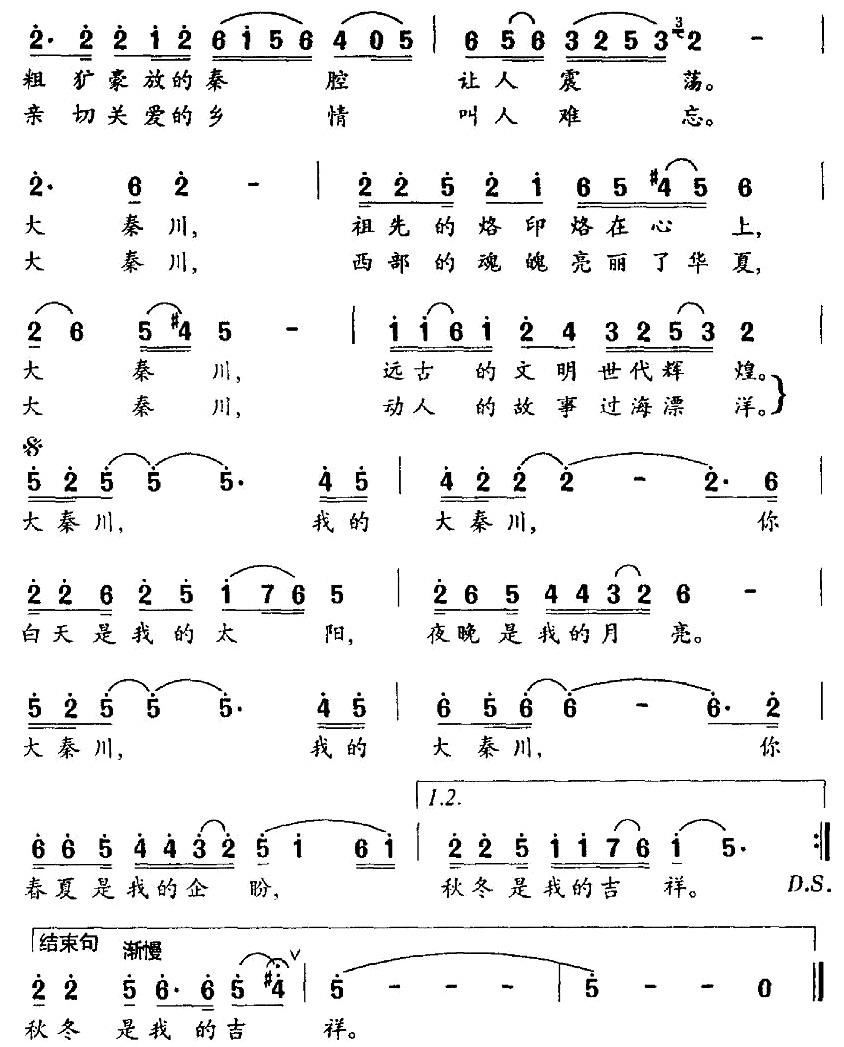 2. 2 2 1 2 6 1 5 6 4 0 5 | 6 5 6 3 2 5 3 3 2 - |
粗 犷 豪 放 的 秦 腔 让 人 震 荡。
亲 切 关 爱 的 乡 情 叫 人 难 忘。
2. 6 2 - | 2 2 5 2 1 6 5 #4 5 6 |
大 秦 川, 祖 先 的 烙 印 烙 在 心 上,
大 秦 川, 西 部 的 魂 魄 亮 丽 了 华 夏,
2 6 5 #4 5 - | 1 1 6 1 2 4 3 2 5 3 2 |
大 秦 川, 远 古 的 文 明 世 代 辉 煌。
大 秦 川, 动 人 的 故 事 过 海 漂 洋。
5 2 5 5 5. 4 5 | 4 2 2 2 - 2. 6 |
大 秦 川, 我 的 大 秦 川, 你
2 2 6 2 5 1 7 6 5 | 2 6 5 4 4 3 2 6 - |
白 天 是 我 的 太 阳, 夜 晚 是 我 的 月 亮。
5 2 5 5 5. 4 5 | 6 5 6 6 - 6. 2 |
大 秦 川, 我 的 大 秦 川, 你
1.2.
6 6 5 4 4 3 2 5 1 6 1 | 2 2 5 1 1 7 6 1 5. :||
春 夏 是 我 的 企 盼, 秋 冬 是 我 的 吉 祥。 D.S.
结束句 渐慢
2 2 5 6. 6 5 #4 | 5 - - - | 5 - - 0 ||
秋 冬 是 我 的 吉 祥。